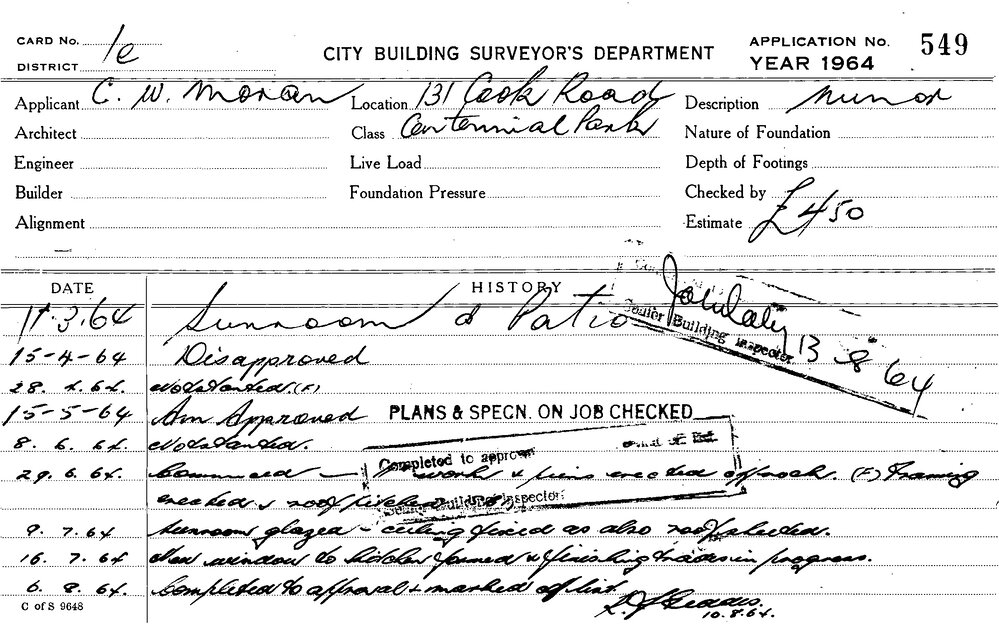 CARD No. 1e
CITY BUILDING SURVEYOR'S DEPARTMENT
APPLICATION No. 549
DISTRICT
YEAR 1964
Applicant C. W. Moran Location 131 Cook Road Description Minor
Architect Class Centennial Park Nature of Foundation
Engineer Live Load Depth of Footings
Builder Foundation Pressure Checked by
Alignment Estimate £450
DATE HISTORY
17.3.64 Sunroom & Patio
Senior Building Inspector
13 8 64
15-4-64 Disapproved
28. 4. 64. Not started. (F)
15-5-64 Am Approved PLANS & SPECN. ON JOB CHECKED
8. 6. 64. Not started.
Completed to approval
29. 6. 64. Commenced work & piers erected off rock. (F) Framing
erected & roof pitched
Senior Building Inspector
9. 7. 64 Sunroom glazed - ceiling fixed as also roof sheeted.
16. 7. 64 New window to kitchen formed & finishing trades in progress.
6. 8. 64. Completed to approval & marked off list.
10.8.64.
C of S 9648